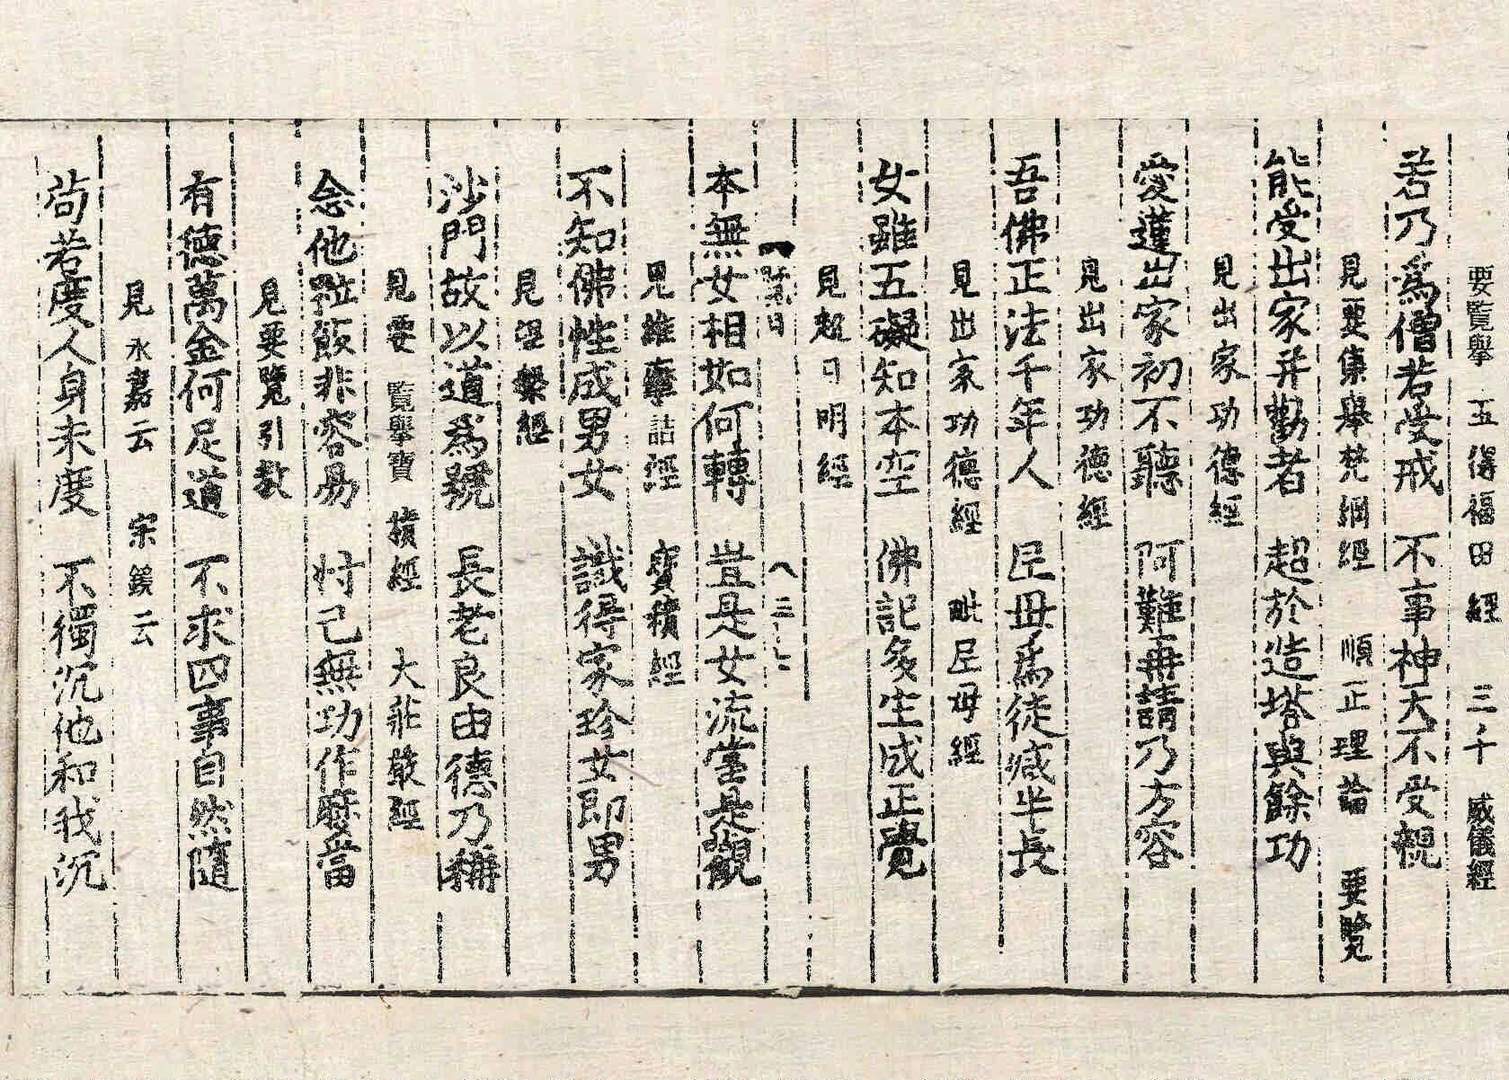 要覧擧 五得福田經 三千威儀經
若乃爲僧若受戒 不事神天不受親
見要集舉梵網經 順正理論 要覽
能受出家并勸者 超於造塔與餘功
見出家功德經
愛蓮出家初不聽 阿難再請乃方容
見出家功德經
吾佛正法千年人 因毋爲徒减半長
見出家功德經 毗尼母經
女雖五礙知本空 佛記多生成正覺
見超日明經
八 三
本無女相如何轉 豈是女流當是觀
見維摩詰經 寶積經
不知佛性成男女 識得家珍女即男
見涅槃經
沙門故以道爲號 長老良由德乃稱
見要覧擧寶積經 大莊嚴經
念他粒飯非容易 忖己無功作麽當
見要覽引教
有德萬金何足道 不求四事自然隨
見永嘉云 宗鏡云
苟若度人身未度 不獨沉他和我沉